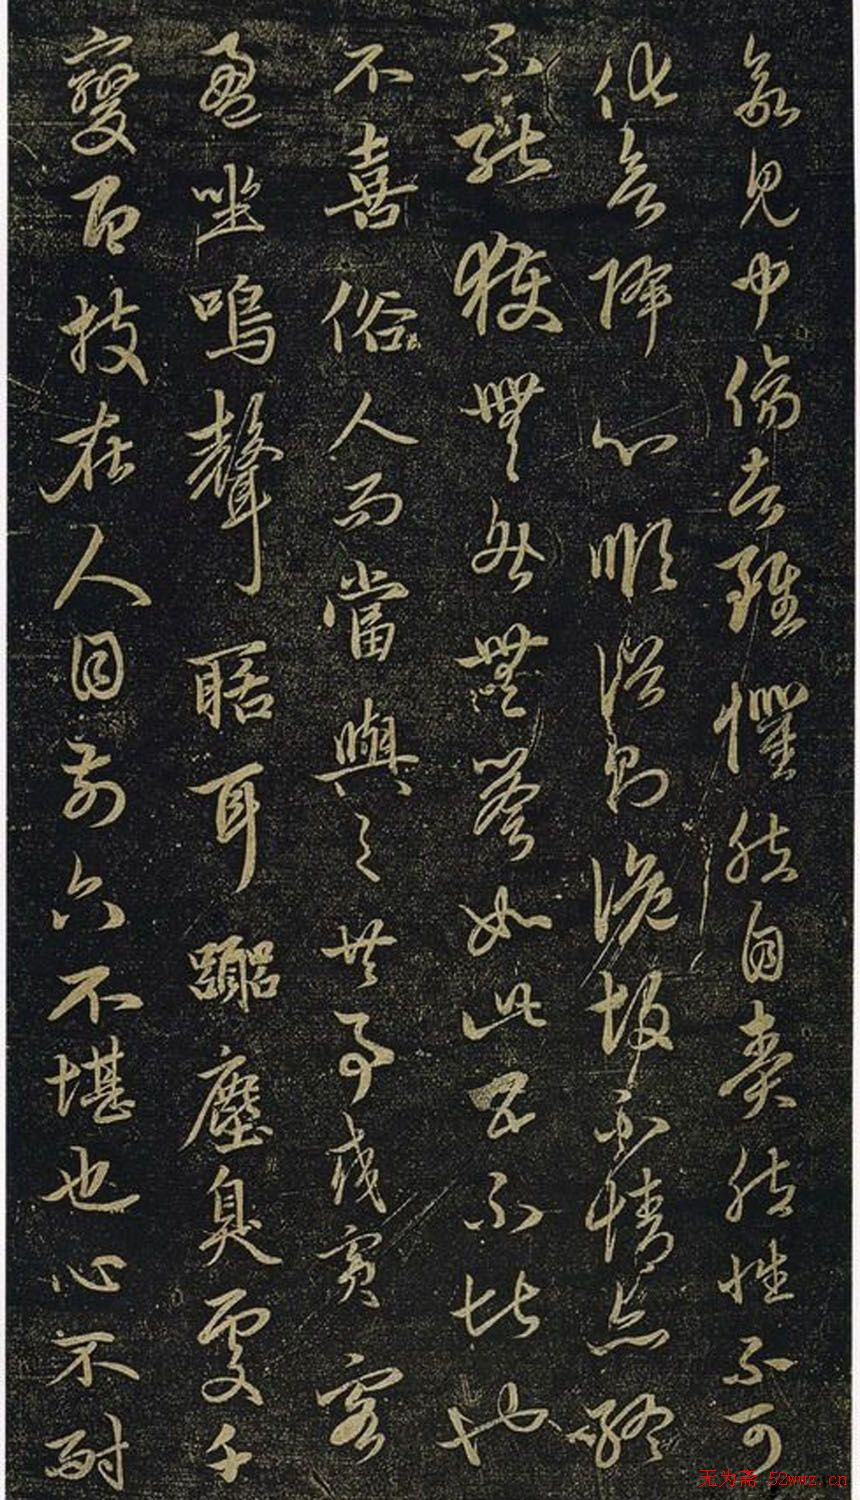 欲見中傷者雖懼然自責然性不可
化欲降心順俗則詭故不情亦終
不能獲無咎無譽如此五不堪也
不喜俗人而當與之共事或賓客
盈坐鳴聲聒耳囂塵臭處千
變百技在人目前六不堪也心不耐
无为斋 52wwz.cn